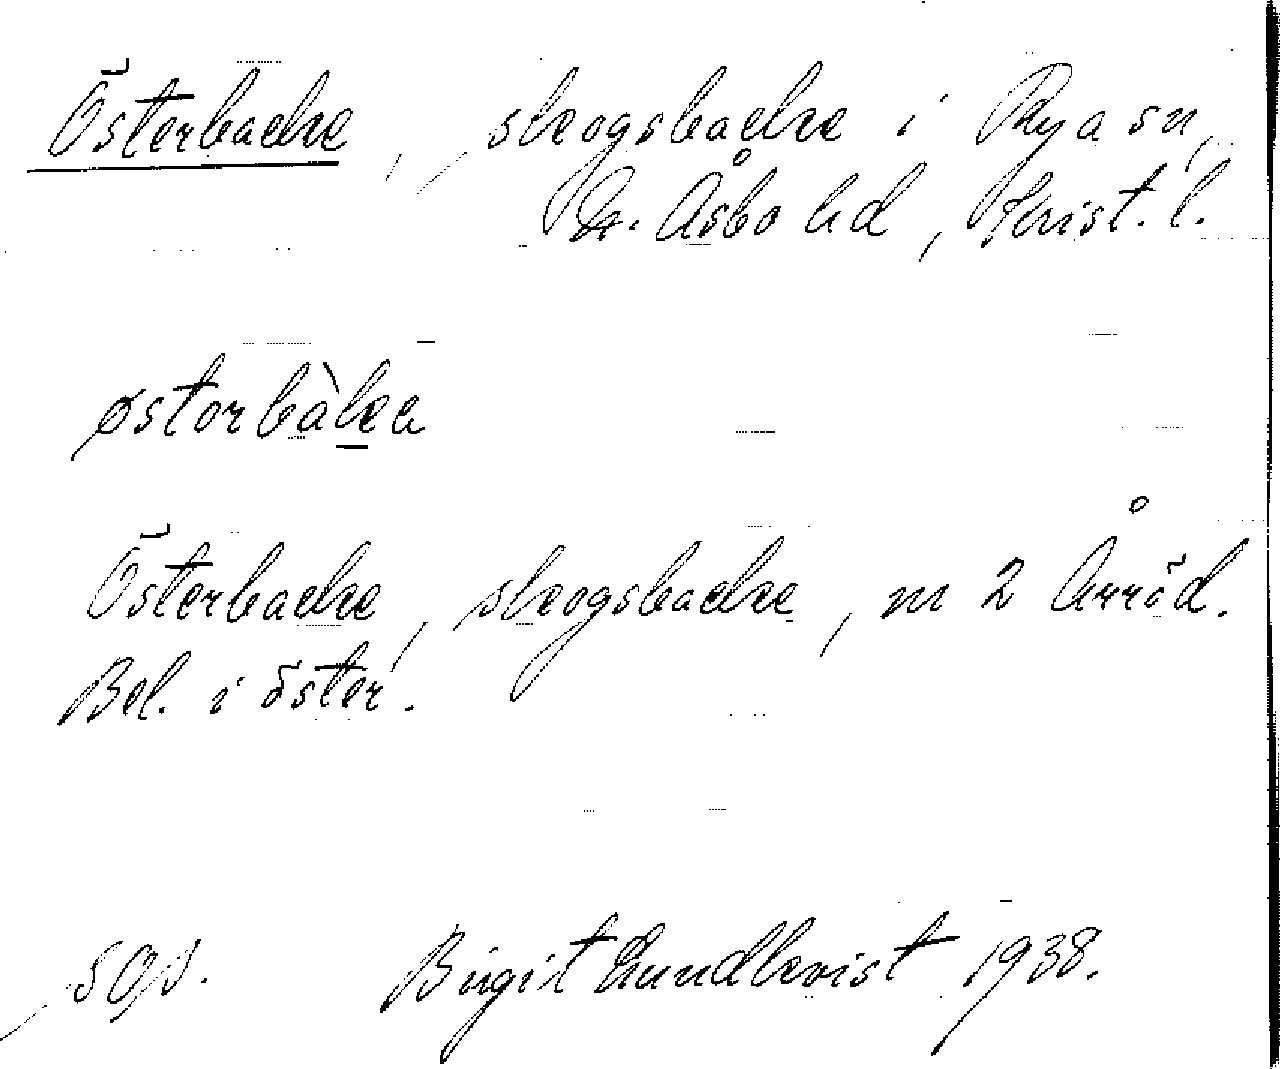 Österbacke, skogsbacke i Rya sn,
N. Åsbo hd, Krist. l.
østorbàkа
Österbacke, skogsbacke, m 2 Årröd.
Bel. i öster.
Birgit Lundkvist 1938.